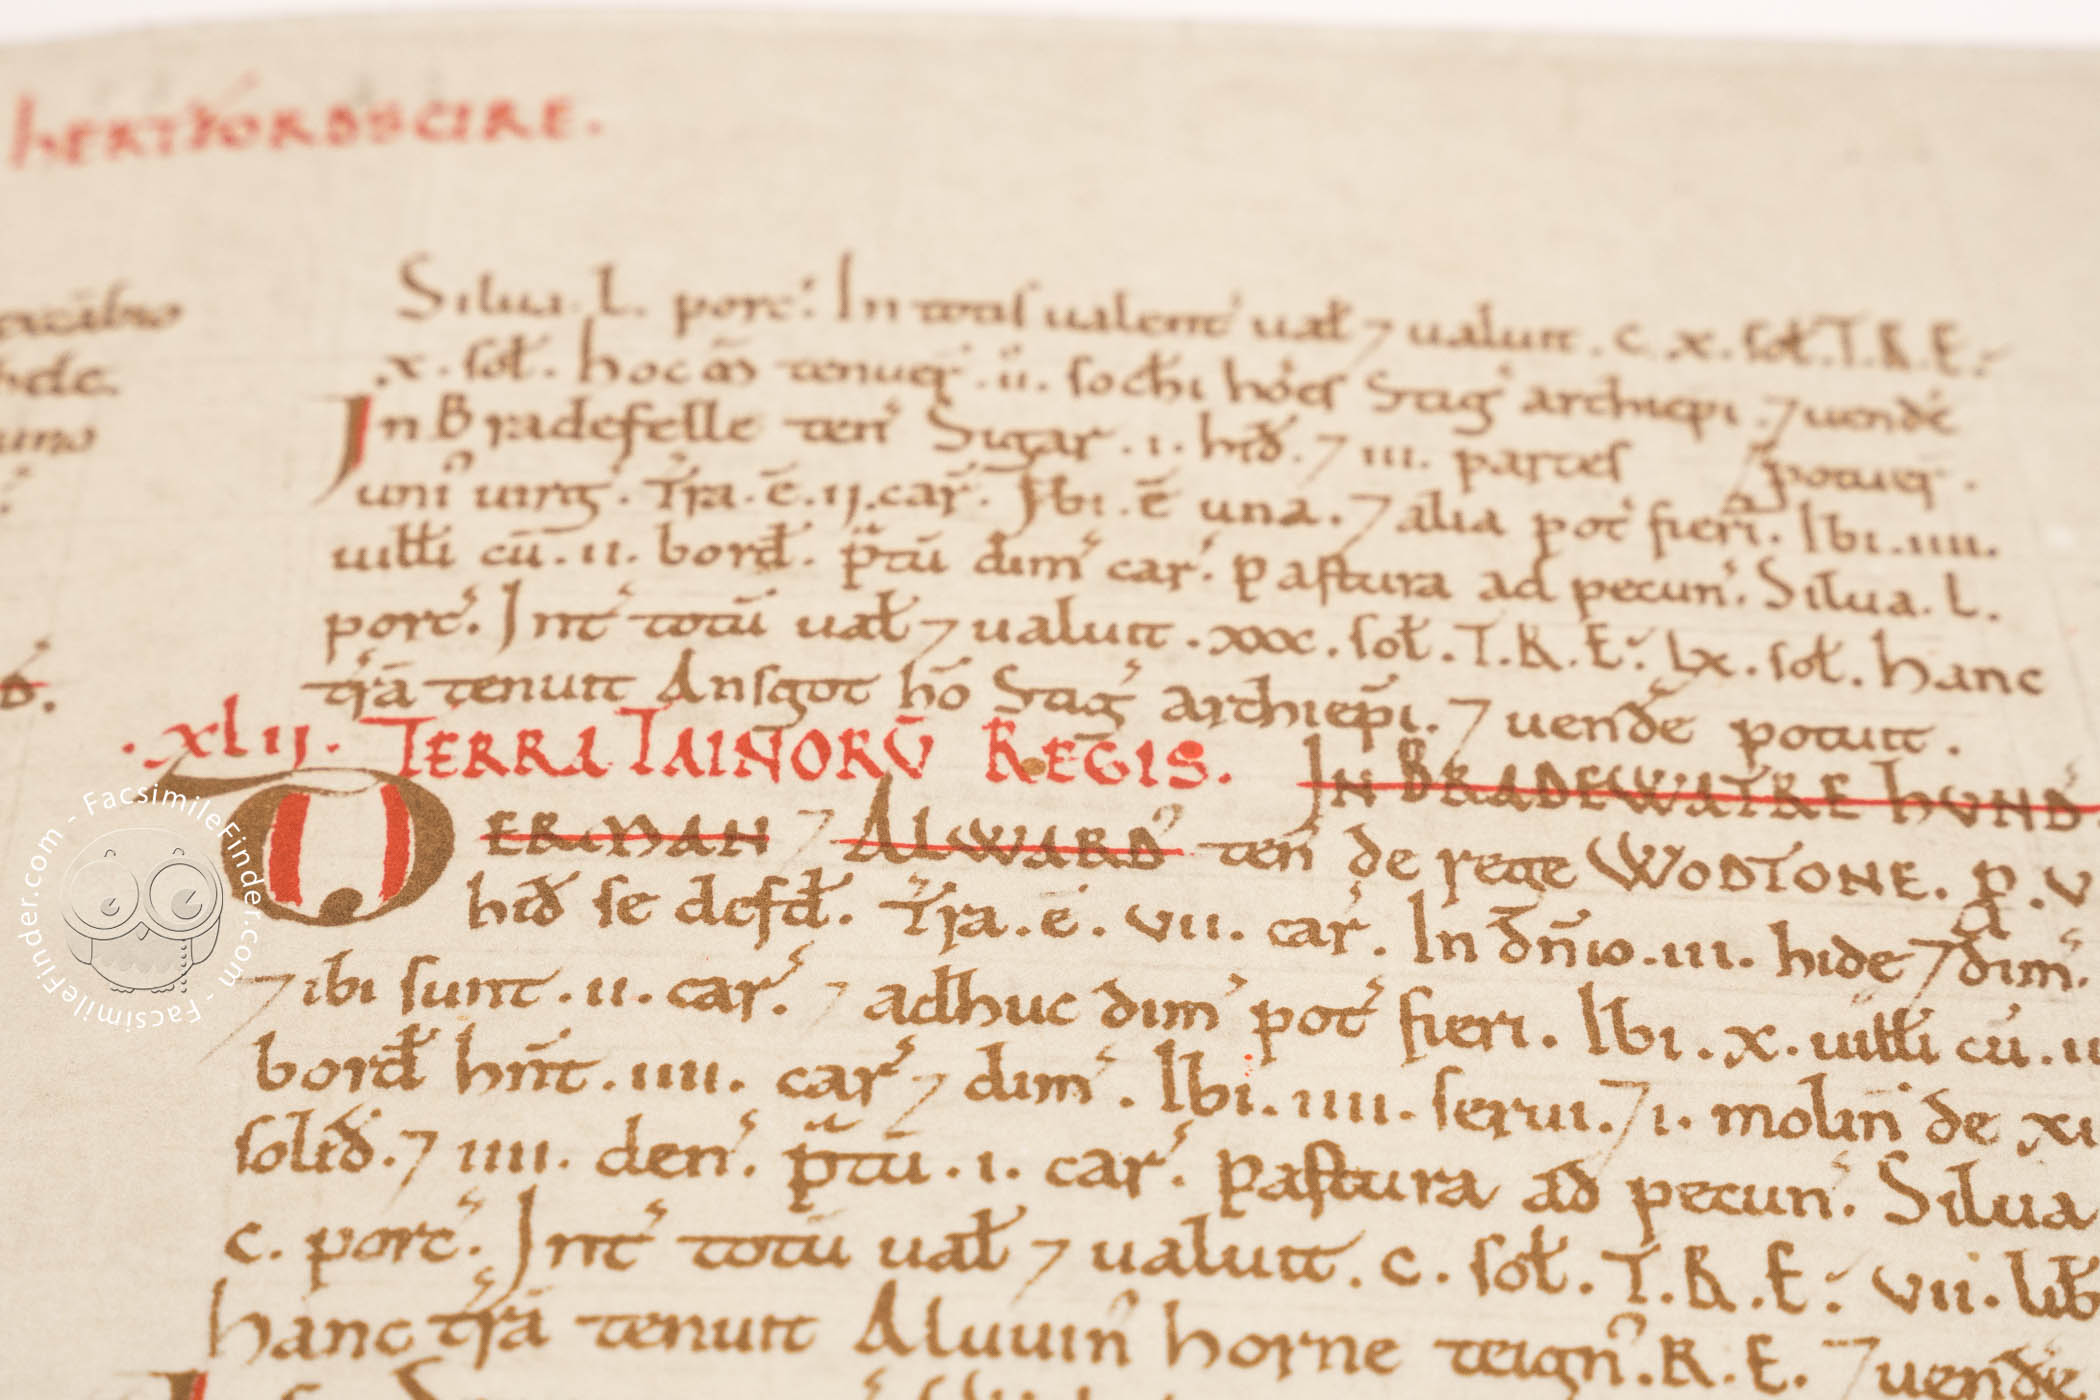 hERTFORDSCIRE.
Silua. L. porc'. In totis ualent' ual' ⁊ ualuit. c. x. sol'. T.R.E:
.x. sol'. hoc m̃ tenuer'. ii. sochi ho'es Stig' archiep̃i. ⁊ uende'
In Bradefelle ten' Sigar. i. hid'. ⁊ iii. partes ⁊ potuer'.
uni' uirg'. T'ra. ē. ii. car'. Ibi. ē una. ⁊ alia pot' fieri. Ibi. iiii.
uilli cū. ii. bord'. p̃tū dim' car'. Pastura ad pecun'. Silua. L.
porc'. Int' totū ual' ⁊ ualuit. xxx. sol'. T.R.E: Lx. sol'. hanc
t'rā tenuit Ansgot hõ Stig' archiep̃i. ⁊ uende' potuit.
.xlii. TERRA TAINORŪ REGIS. IN BRADEWATRE hVND'
DERMAN ⁊ ALWARD' ten' de rege WODTONE. p. V
hid' se defd'. T'ra. ē. vii. car'. In dñio. iii. hide ⁊ dim'.
⁊ ibi sunt. ii. car'. ⁊ adhuc dim' pot' fieri. Ibi. x. uilli cū. ii
bord' hñt. iiii. car' ⁊ dim'. Ibi. iiii. serui. ⁊ i. molin' de xi
solid'. ⁊ iiii. den'. p̃tū. i. car'. Pastura ad pecun'. Silua
c. porc'. Int' totū ual' ⁊ ualuit. c. sol'. T.R.E: vii. lib'
hanc t'rā tenuit Aluuin' horne teign'. R.E. ⁊ uende'
FacsimileFinder.com - FacsimileFinder.com -